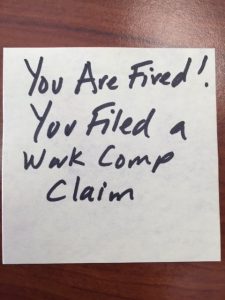 You Are Fired!
You Filed a
Work Comp
Claim